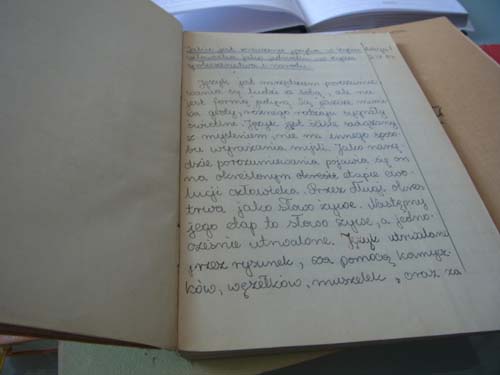 Jakie jest znaczenie języka w życiu
człowieka jako jednostki i w życiu
społeczeństwa i narodu.
Język jest narzędziem porozumie-
wania się ludzi ze sobą, ale nie
jest formą jedyną. Są jeszcze mimi-
ka gesty, rożnego rodzaju sygnały
świetlne. Język jest ściśle związany
z myśleniem, nie ma innego sposo-
bu wyrażania myśli. Jako narzę-
dzie porozumiewania pojawia się on
na określonym okresie etapie ewo-
lucji człowieka. Przez długi okres
trwa jako słowo żywe. Następny
jego etap to słowo żywe, a jedno-
cześnie utrwalone. Język utrwalano
przez rysunek, za pomocą kamycz-
ków, węzełków, muszelek, oraz za